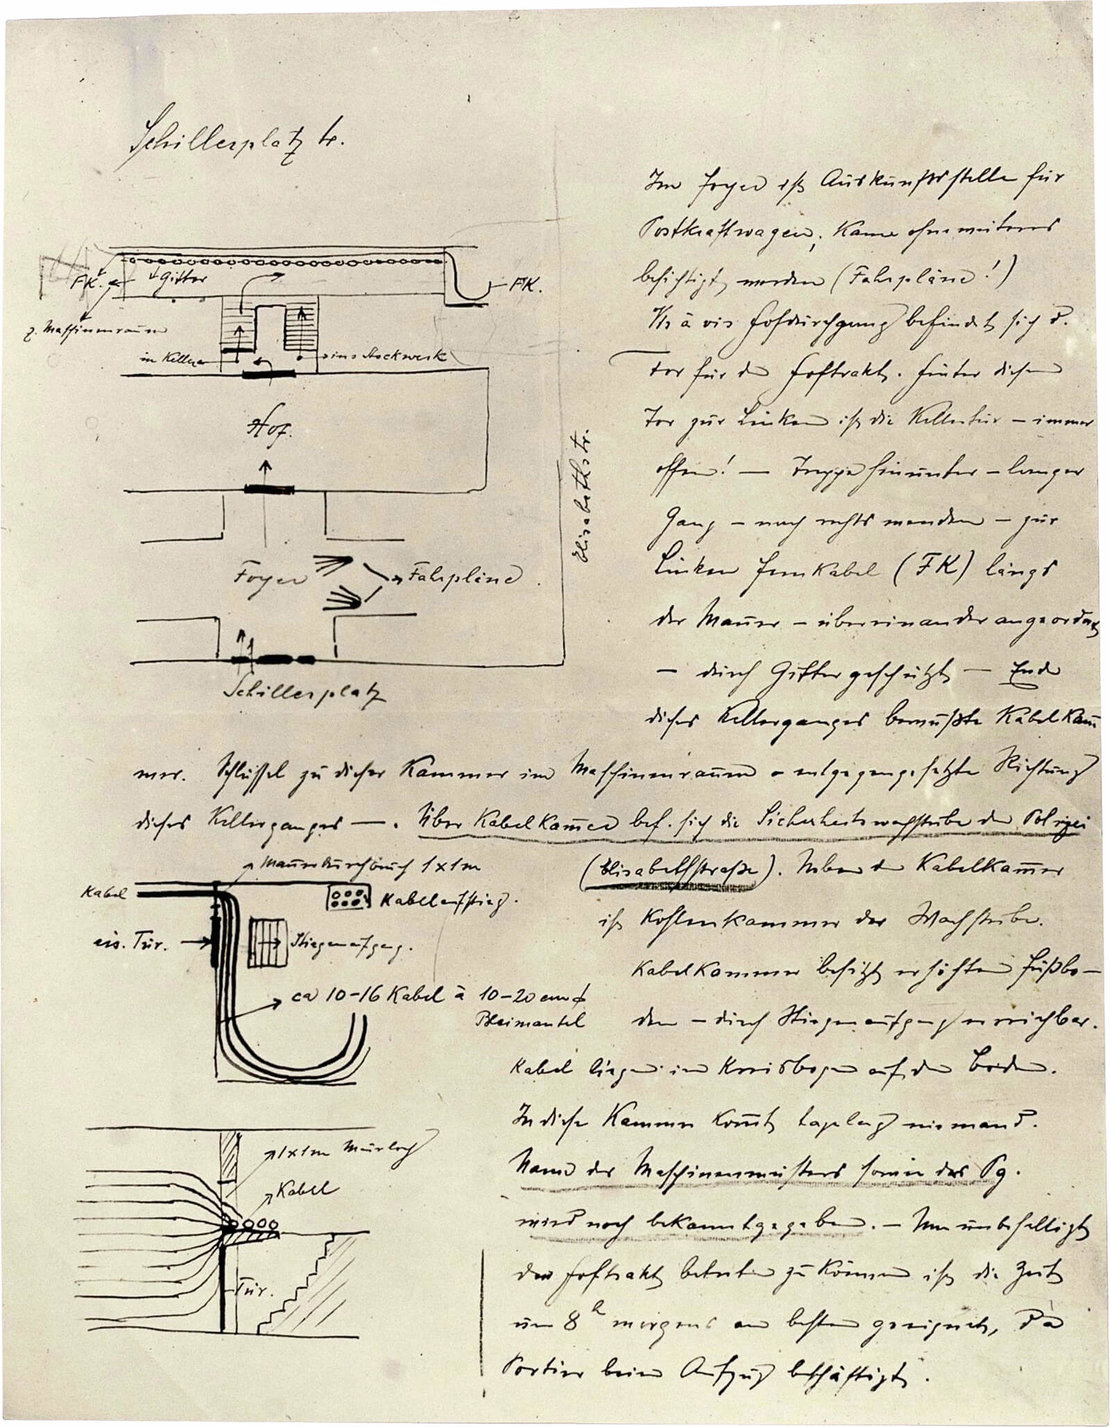 Schillerplatz 4.
Im Foyer ist Auskunftsstelle für
Postkraftwagen; kann ohne weiteres
besichtigt werden (Fahrpläne!)
Vis à vis Hofdurchgang befindet sich d.
Tor für den Hoftrakt. Hinter diesem
Tor zur Linken ist die Kellertür – immer
offen! — Treppe hinunter – langer
Gang – nach rechts wenden – zur
Linken Fernkabel (FK) längs
der Mauer – übereinander angeordnet
– durch Gitter geschützt — Ende
dieses Kellerganges bewußte Kabelkam̄
mer. Schlüssel zu dieser Kammer im Maschinenraum – entgegengesetzte Richtung
dieses Kellerganges —. Über Kabelkam̄er bef. sich die Sicherheitswachstube der Polizei
(Elisabethstraße). Neben der Kabelkam̄er
ist Kohlenkammer der Wachstube.
Kabelkammer besitzt erhöhten Fußbo–
den – durch Stiegenaufgang erreichbar.
Kabel liegen im Kreisbogen auf dem Boden.
In diese Kammer kom̄t tagelang niemand.
Name des Maschinenmeisters sowie des Pg.
wird noch bekanntgegeben. – Um unbehelligt
den Hoftrakt betreten zu können ist die Zeit
um 8h morgens am besten geeignet, da
Portier beim Aufzug beschäftigt.
FK.
Gitter
FK.
z. Maschinenraum
in Keller
ins Stockwerk
Hof.
Elisabethstr.
Foyer
Fahrpläne.
Schillerplatz
Mauerdurchbruch 1x1m
Kabel
Kabelaufstieg.
eis. Tür.
Stiegenaufgang.
ca 10–16 Kabel à 10–20 cm ϕ
Bleimantel
1x1m Mauerloch
Kabel
Tür.